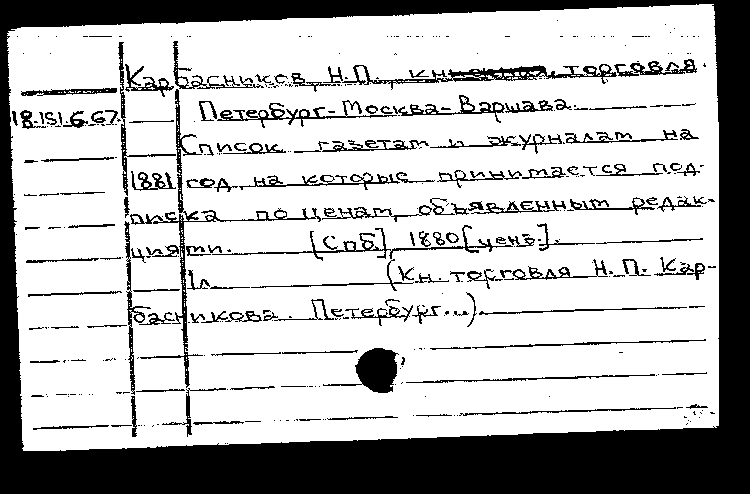 Карбасников, Н.П., торговля.
18.151.6.67. Петербург-Москва-Варшава.
Список газетам и журналам на
1881 год, на которые принимается под-
писка по ценам, объявленным редак-
циями. [Спб], 1880 [ценз.].
1л. (Кн. торговля Н. П. Кар-
басникова. Петербург...).